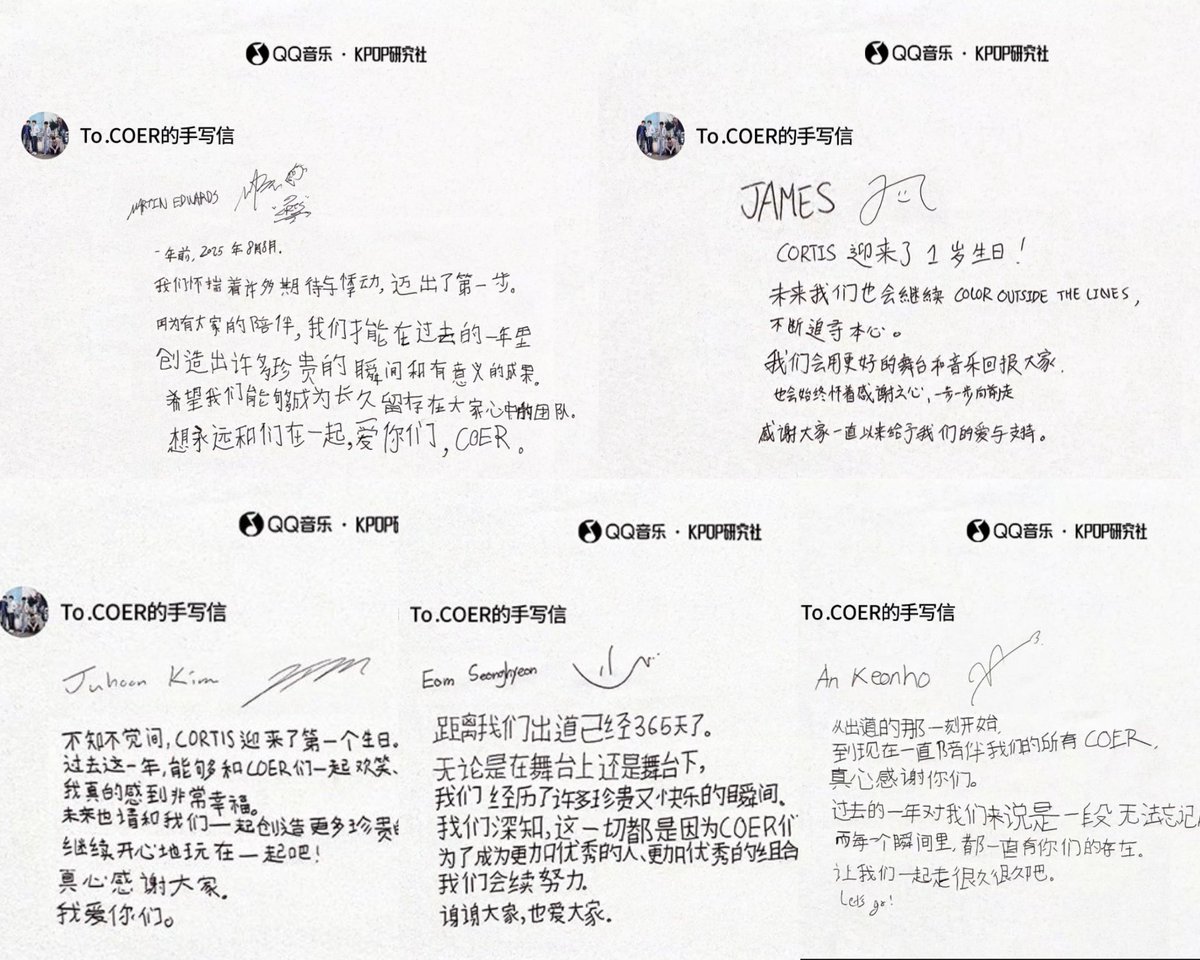 QQ音乐 · KPOP研究社
To.COER的手写信
MARTIN EDWARDS
一年前, 2025年8月8月.
我们怀揣着许多期待与悸动, 迈出了第一步。
因为有大家的陪伴, 我们才能在过去的一年里
创造出许多珍贵的瞬间和有意义的成果。
希望我们能够成为长久留存在大家心中的团队。
想永远和们在一起, 爱你们, COER。
QQ音乐 · KPOP研究社
To.COER的手写信
JAMES
CORTIS 迎来了 1 岁生日!
未来我们也会继续 COLOR OUTSIDE THE LINES,
不断追寻本心。
我们会用更好的舞台和音乐回报大家.
也会始终怀着感谢之心, 一步一步向前走
感谢大家一直以来给予我们的爱与支持。
QQ音乐 · KPOP研
To.COER的手写信
Juhoon Kim
不知不觉间, CORTIS迎来了第一个生日。
过去这一年, 能够和COER们一起欢笑、
我真的感到非常幸福。
未来也请和我们一起创造更多珍贵的
继续开心地玩在一起吧!
真心感谢大家。
我爱你们。
QQ音乐 · KPOP研究社
To.COER的手写信
Eom Seonghyeon
距离我们出道已经365天了。
无论是在舞台上还是舞台下,
我们经历了许多珍贵又快乐的瞬间.
我们深知, 这一切都是因为COER们
为了成为更加优秀的人、更加优秀的组合
我们会续努力.
谢谢大家, 也爱大家.
QQ音乐 · KPOP研究社
To.COER的手写信
An Keonho
从出道的那一刻开始,
到现在一直陪伴我们的所有COER,
真心感谢你们。
过去的一年对我们来说是一段无法忘记
而每一个瞬间里, 都一直有你们的存在.
让我们一起走很久很久吧。
Let's go!